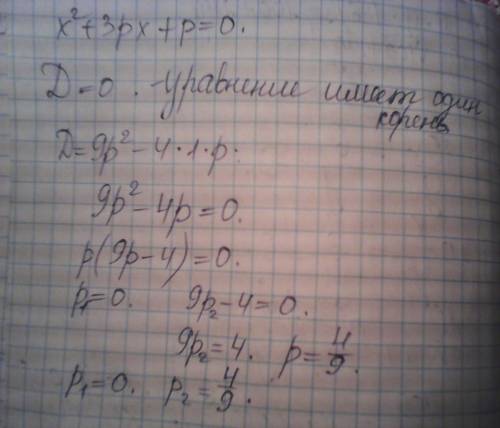 x²+3px+p=0.
D=0. уравнение имеет один
корень
D=9p²-4·1·p.
9p²-4p=0.
p(9p-4)=0.
p₁=0. 9p₂-4=0.
9p₂=4. p=4/9.
p₁=0. p₂=4/9.